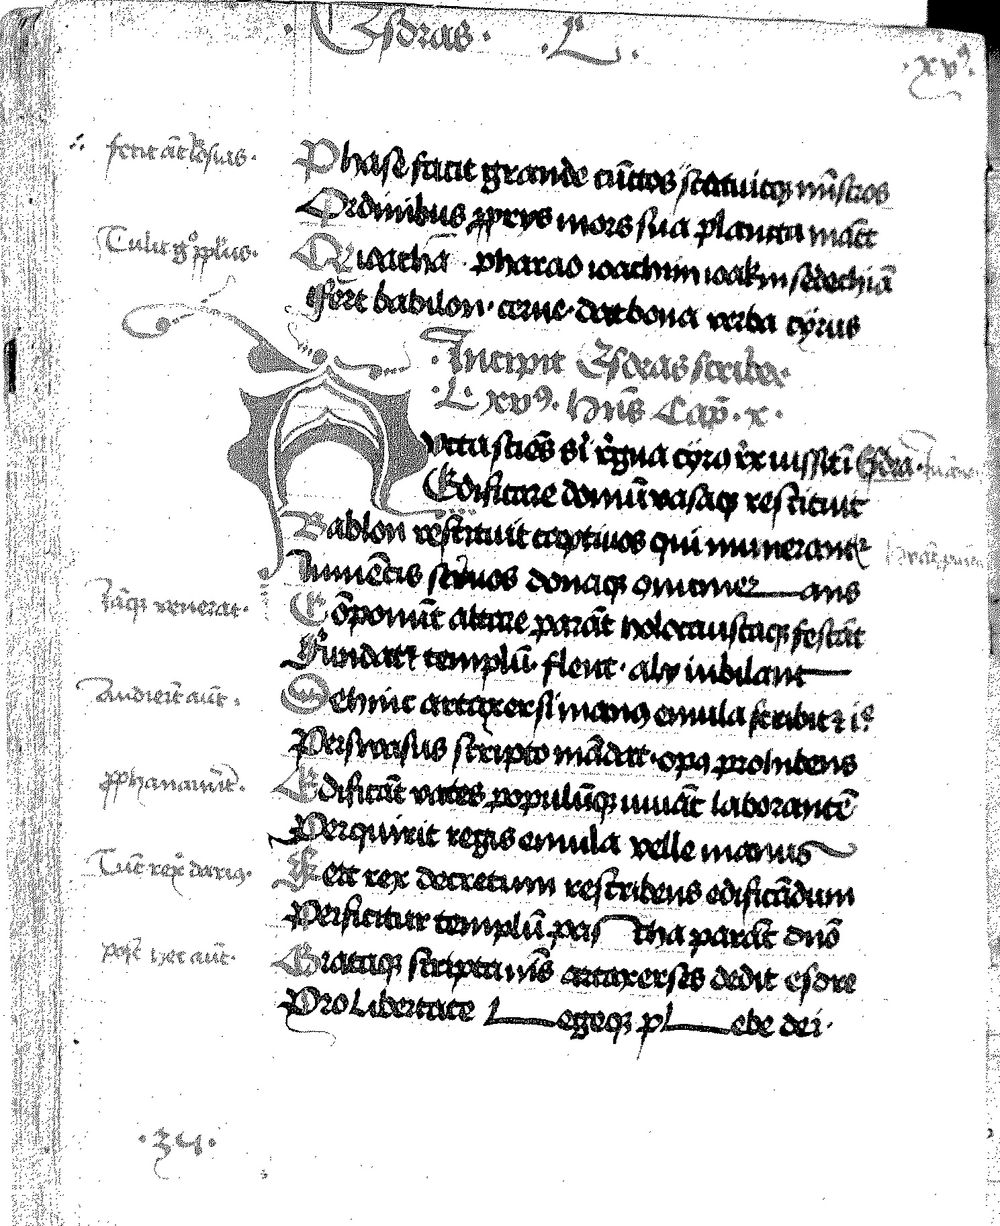 Esdras . L .
. xv⁹.
fecit aūt Iosias .
Phase facit grande cūctos statuitq; mīstros
Ordinibus ꝓprijs mors sua plancta manēt
Tulit g° ppl'us .
Quē ioachā . pharao ioachim ioakin sedechiā
Fert babilon . cerne . dat bona verba cyrus
. Incipit Esdras scriba .
. L xv⁹ . Huiꝰ Cap . x .
scies si regna cyro rex iussit
Edificare domū vasaq; restituit
Bablon restituit captiuos qui munerantr
Iumētis seruos donaq; ans
Iāq; venerat .
Cōponūt altare parāt holocaustaq; festāt
Fundatr templū . flent . alij iubilant
Audierūt aūt .
Dehinc artaxersi manꝰ emula scribit
Perswasus scripto mādat . opꝰ prohibens
ꝓphanauūt .
Edificāt vates populūq; iuuāt laborantē
Perquirit regis emula velle manus
Tūc rex dariꝰ .
Fert rex decretum rescribens edificādum
Perficitur templū pas cha parāt dnō
post hec aūt .
Grataq; scripta nīs artaxerses dedit esdre
Pro Libertate Legeq; pLebe dei .
. 34 .